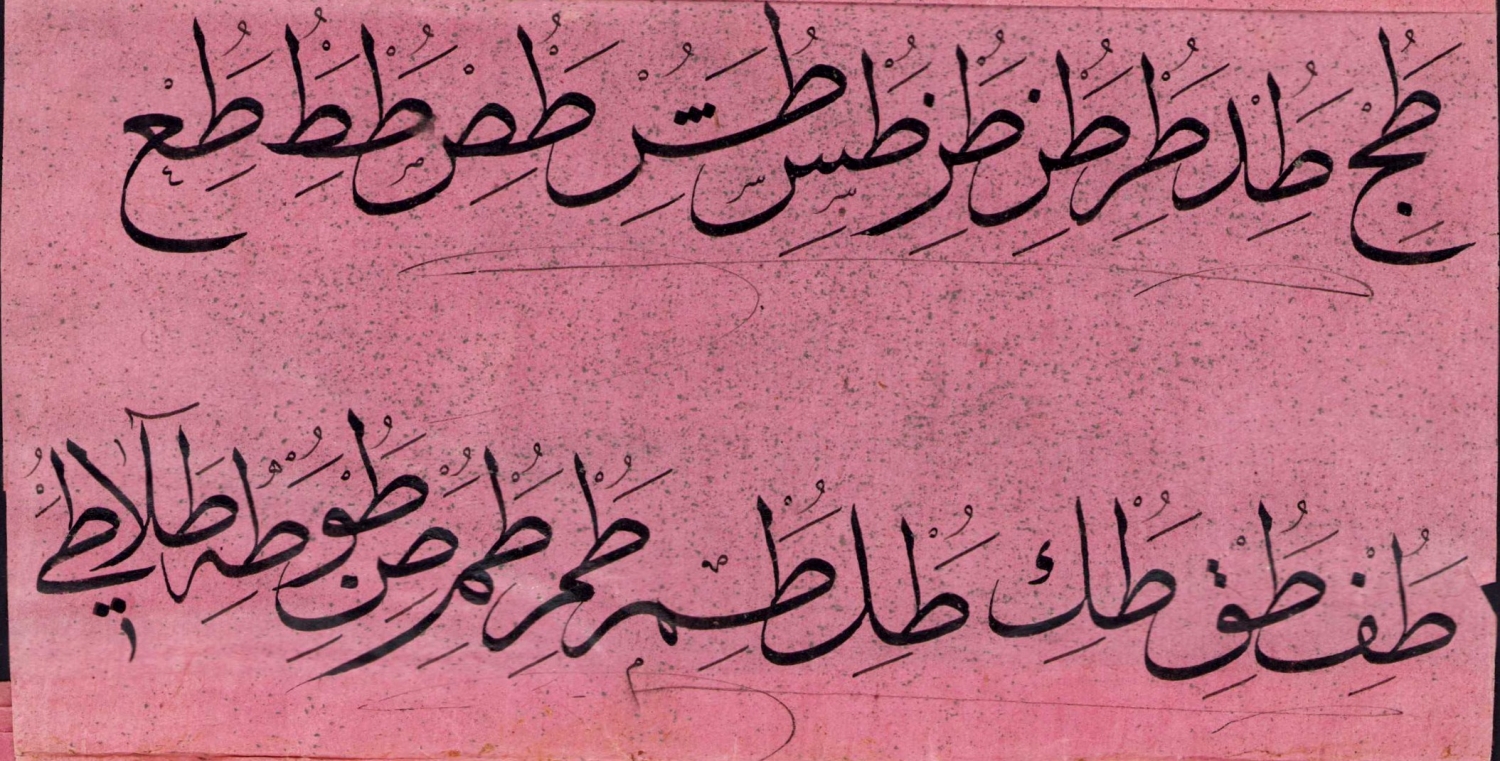 طج طد طر طر طز طز طس طس طص طط طع
طف طق طك طل طم طم طم طن طو طه طلا طي